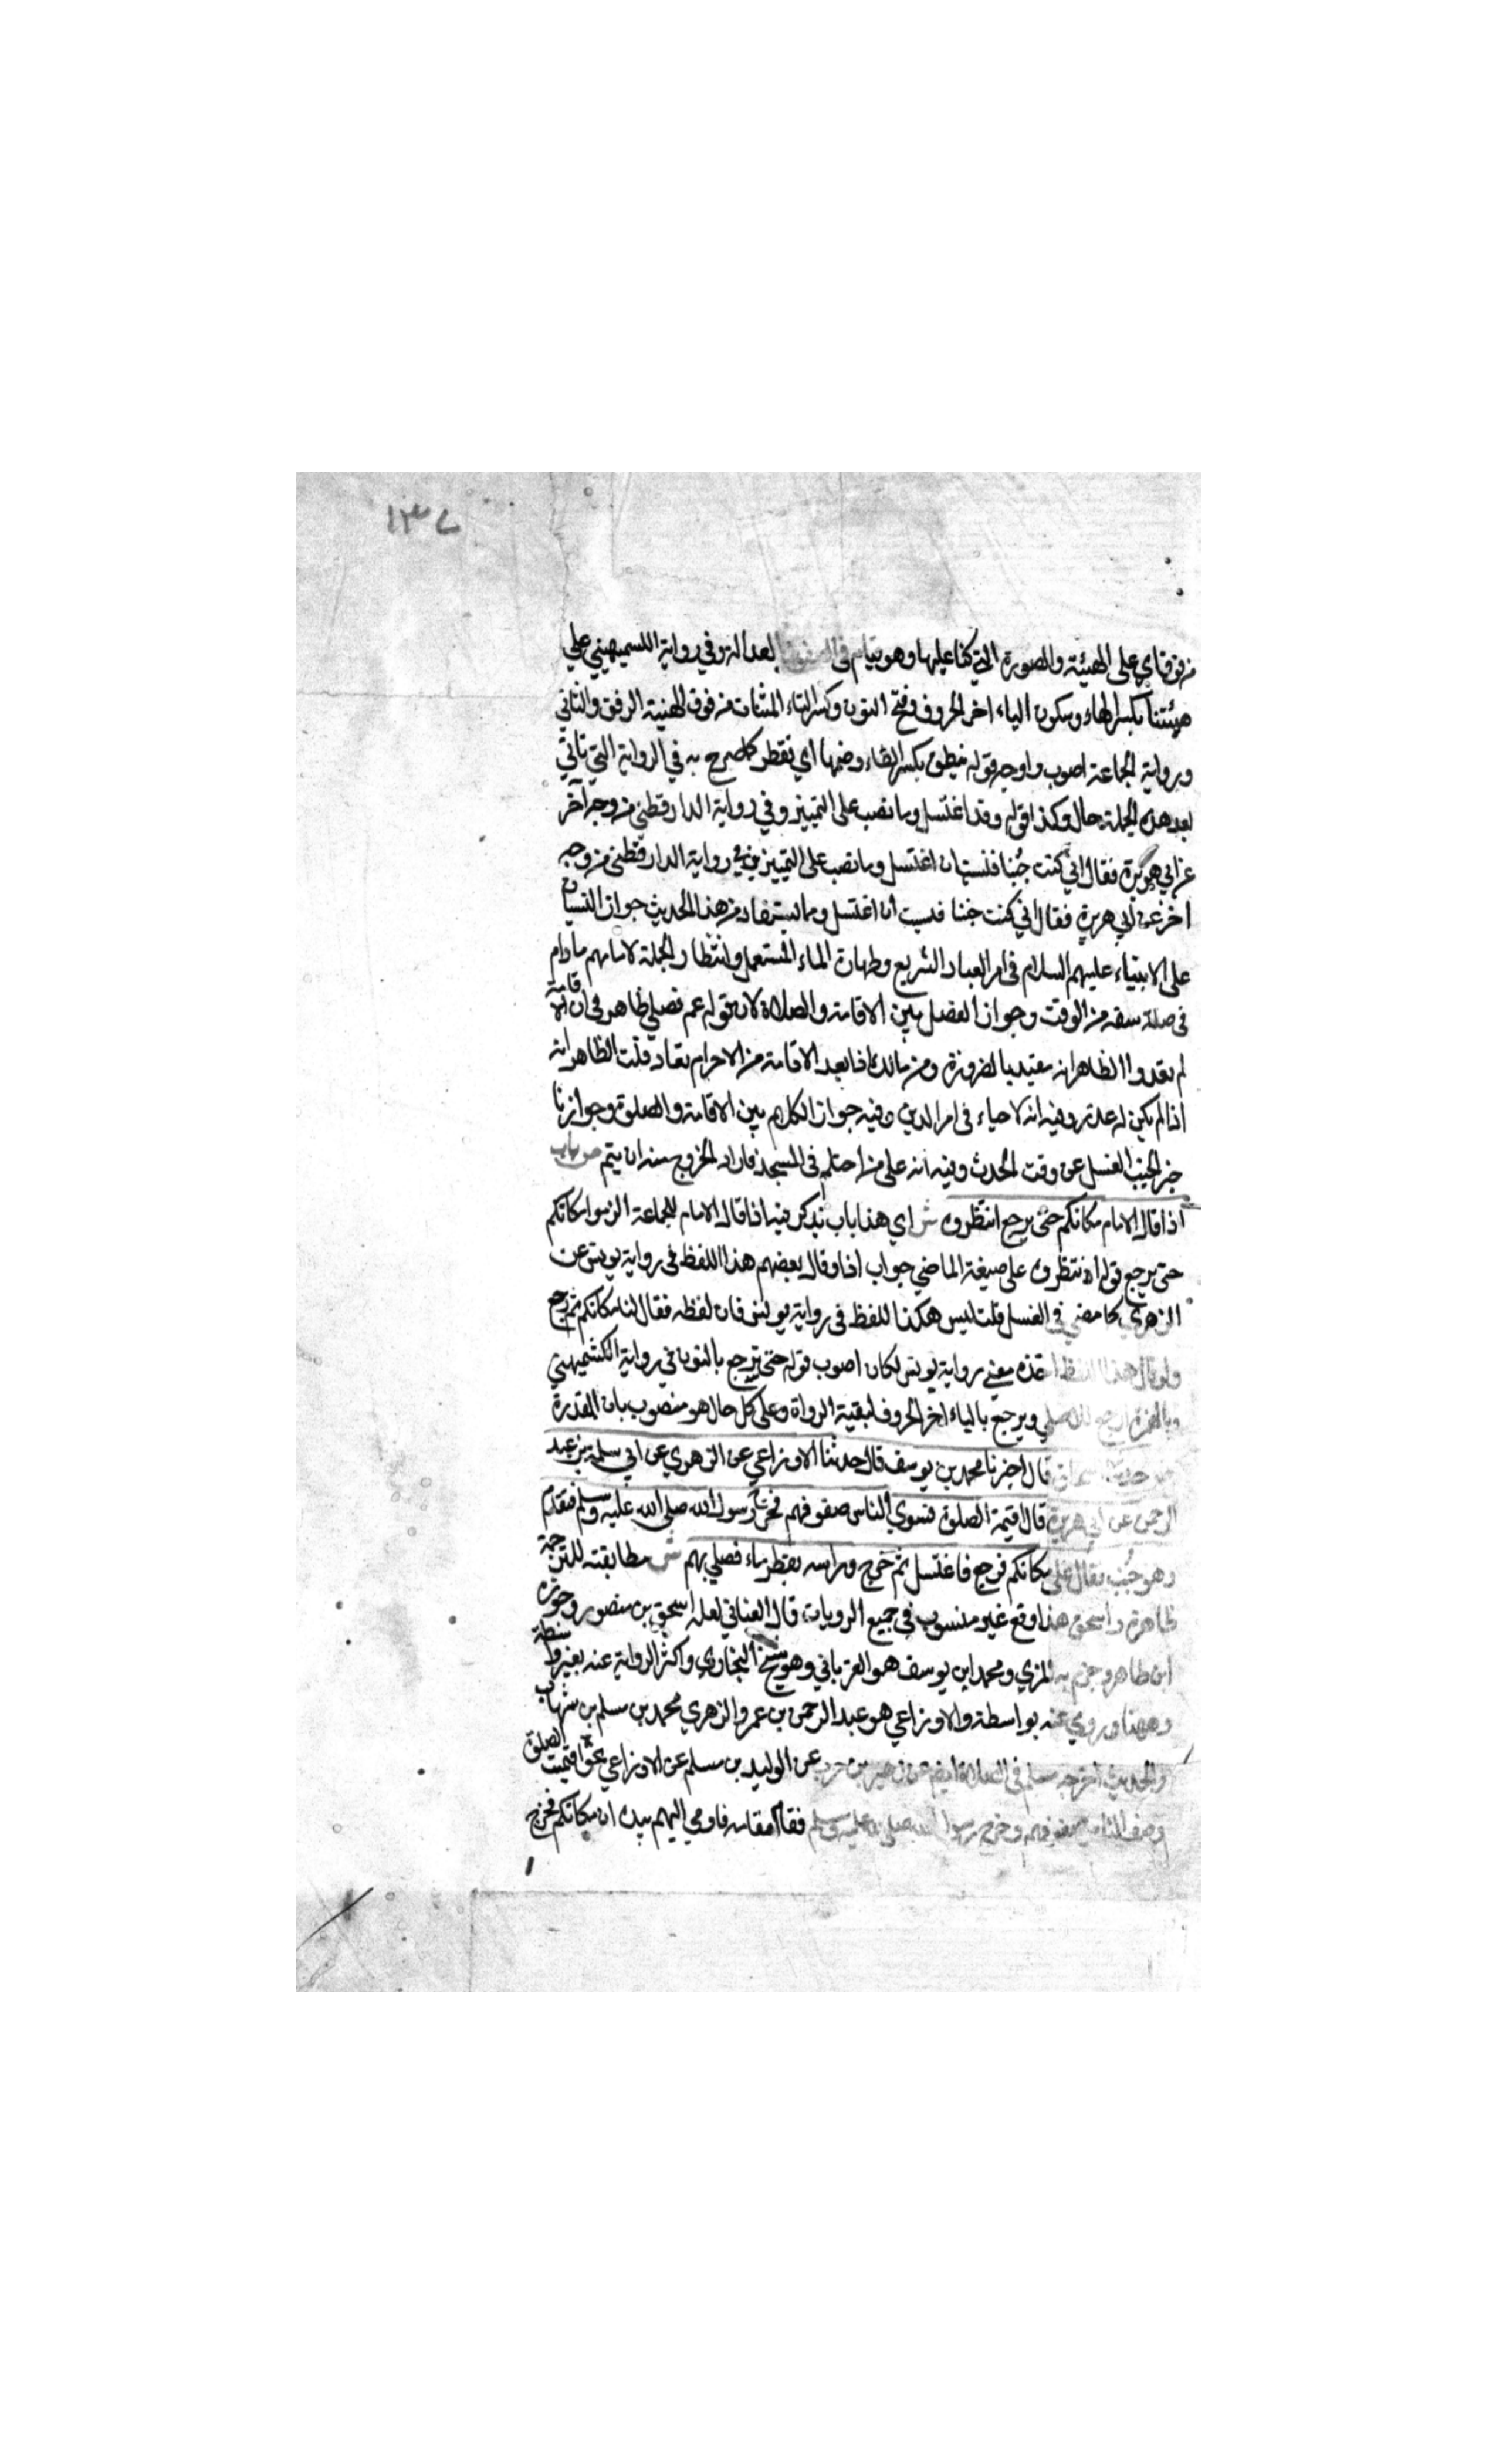 ١٣٧
من فوق اي على الهيئة والصورة التي كنا عليها وهو قيام في الصفوف المعدالة وفي رواية الكسميهيني علي
هيئتنا بكسر الهاء وسكون الياء اخر الحروف وفتح النون وكسر التاء المثناة من فوق الهنية الرفق والثاني
ورواية الجماعة اصوب واوجه قوله ينطق بكسر الطاء وضمها اي تقطر كما صرح به في الرواية التي تاتي
بعد هذه الجملة حال وكذا قوله وقد اغتسل وما نصب على التمييز وفي رواية الدارقطني من وجه آخر
عن ابي هريرة فقال اني كنت جنبا فنسيت ان اغتسل وما نصب على التمييز وفي رواية الدارقطني من وجه
اخر عن ابي هريرة فقال اني كنت جنبا فنسيت ان اغتسل وما يستفاد من هذا الحديث جواز النسيان
على الانبياء عليهم السلام في امر العباد الشريع وطهارة الماء المستعمل وانتظار الجملة لامامهم مادام
في سفه من الوقت وجواز الفصل بين الاقامة والصلاة لان قوله عم فصلي ظاهر في ان الاقامة
لم تعد والظاهر انه مقيد بالضرورة وعن مالك اذا بعد الاقامة من الاحرام تعاد قلت الظاهر انه
اذا لم يكن له عذر وفيه انه لا حياء في امر الدين وفيه جواز الكلام بين الاقامة والصلوة وجواز تا
خير الجنب الغسل عن وقت الحدث وفيه انه على من احتلم في المسجد فاراد الخروج منه ان يتمم ص باب
اذا قال الامام مكانكم حتى يرجع انتظروه ش اي هذا باب يذكر فيه اذا قال الامام للجماعة الزموا مكانكم
حتى يرجع قوله انتظروه على صيغة الماضي جواب اذا وقال بعضهم هذا اللفظ في رواية يونس عن
الزهري كما مضي في الغسل قلت ليس هكذا اللفظ في رواية يونس فان لفظه فقال لنا مكانكم ثم رجع
ولو قال هذا اللفظ اخذه معني رواية يونس لكان اصوب قوله حتى نرجع بالنون في رواية الكشميهني
وبالهمزة ارجع للاصلي ويرجع بالياء اخر الحروف لبقية الرواة وعلى كل حال هو منصوب بان المقدرة
ص حدثنا اسحاق قال اخبرنا محمد بن يوسف قال حدثنا الاوزاعي عن الزهري عن ابي سلمة بن عبد
الرحمن عن ابي هريرة قال اقيمة الصلوة فسوي الناس صفوفهم فخرج رسول الله صلى الله عليه وسلم فتقدم
وهو جُنب فقال على مكانكم فرجع فاغتسل ثم خرج وراسه يقطر ماء فصلي بهم ش مطابقته للترجمة
ظاهرة واسحق هذا وقع غير منسوب في جميع الرويات قال الغناني لعله اسحق بن منصور وجوزه
ابن طاهر وجزم به المزي ومحمد ابن يوسف هو الفرباني وهو شيخ البخاري واكثر الرواية عنه بغير واسطة
وههنا وروي عنه بواسطة والاوزاعي هو عبد الرحمن بن عمرو الزهري محمد بن مسلم بن شهاب
والحديث اخرجه مسلم في الصلاة ايضا عن زهير بن حرب عن الوليد بن مسلم عن الاوزاعي بخو اقيمت الصلوة
وصف الناس صفوفهم وخرج رسول الله صلى الله عليه وسلم فقام مقامه فاومي اليهم بيده ان مكانكم فخرج